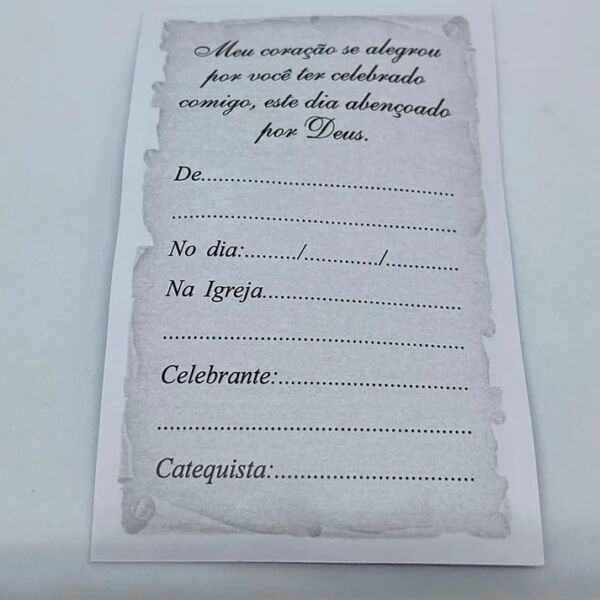 Meu coração se alegrou
por você ter celebrado
comigo, este dia abençoado
por Deus.
De........................................
.............................................
No dia:........./............/............
Na Igreja................................
................................................
Celebrante:..............................
..................................................
Catequista:................................